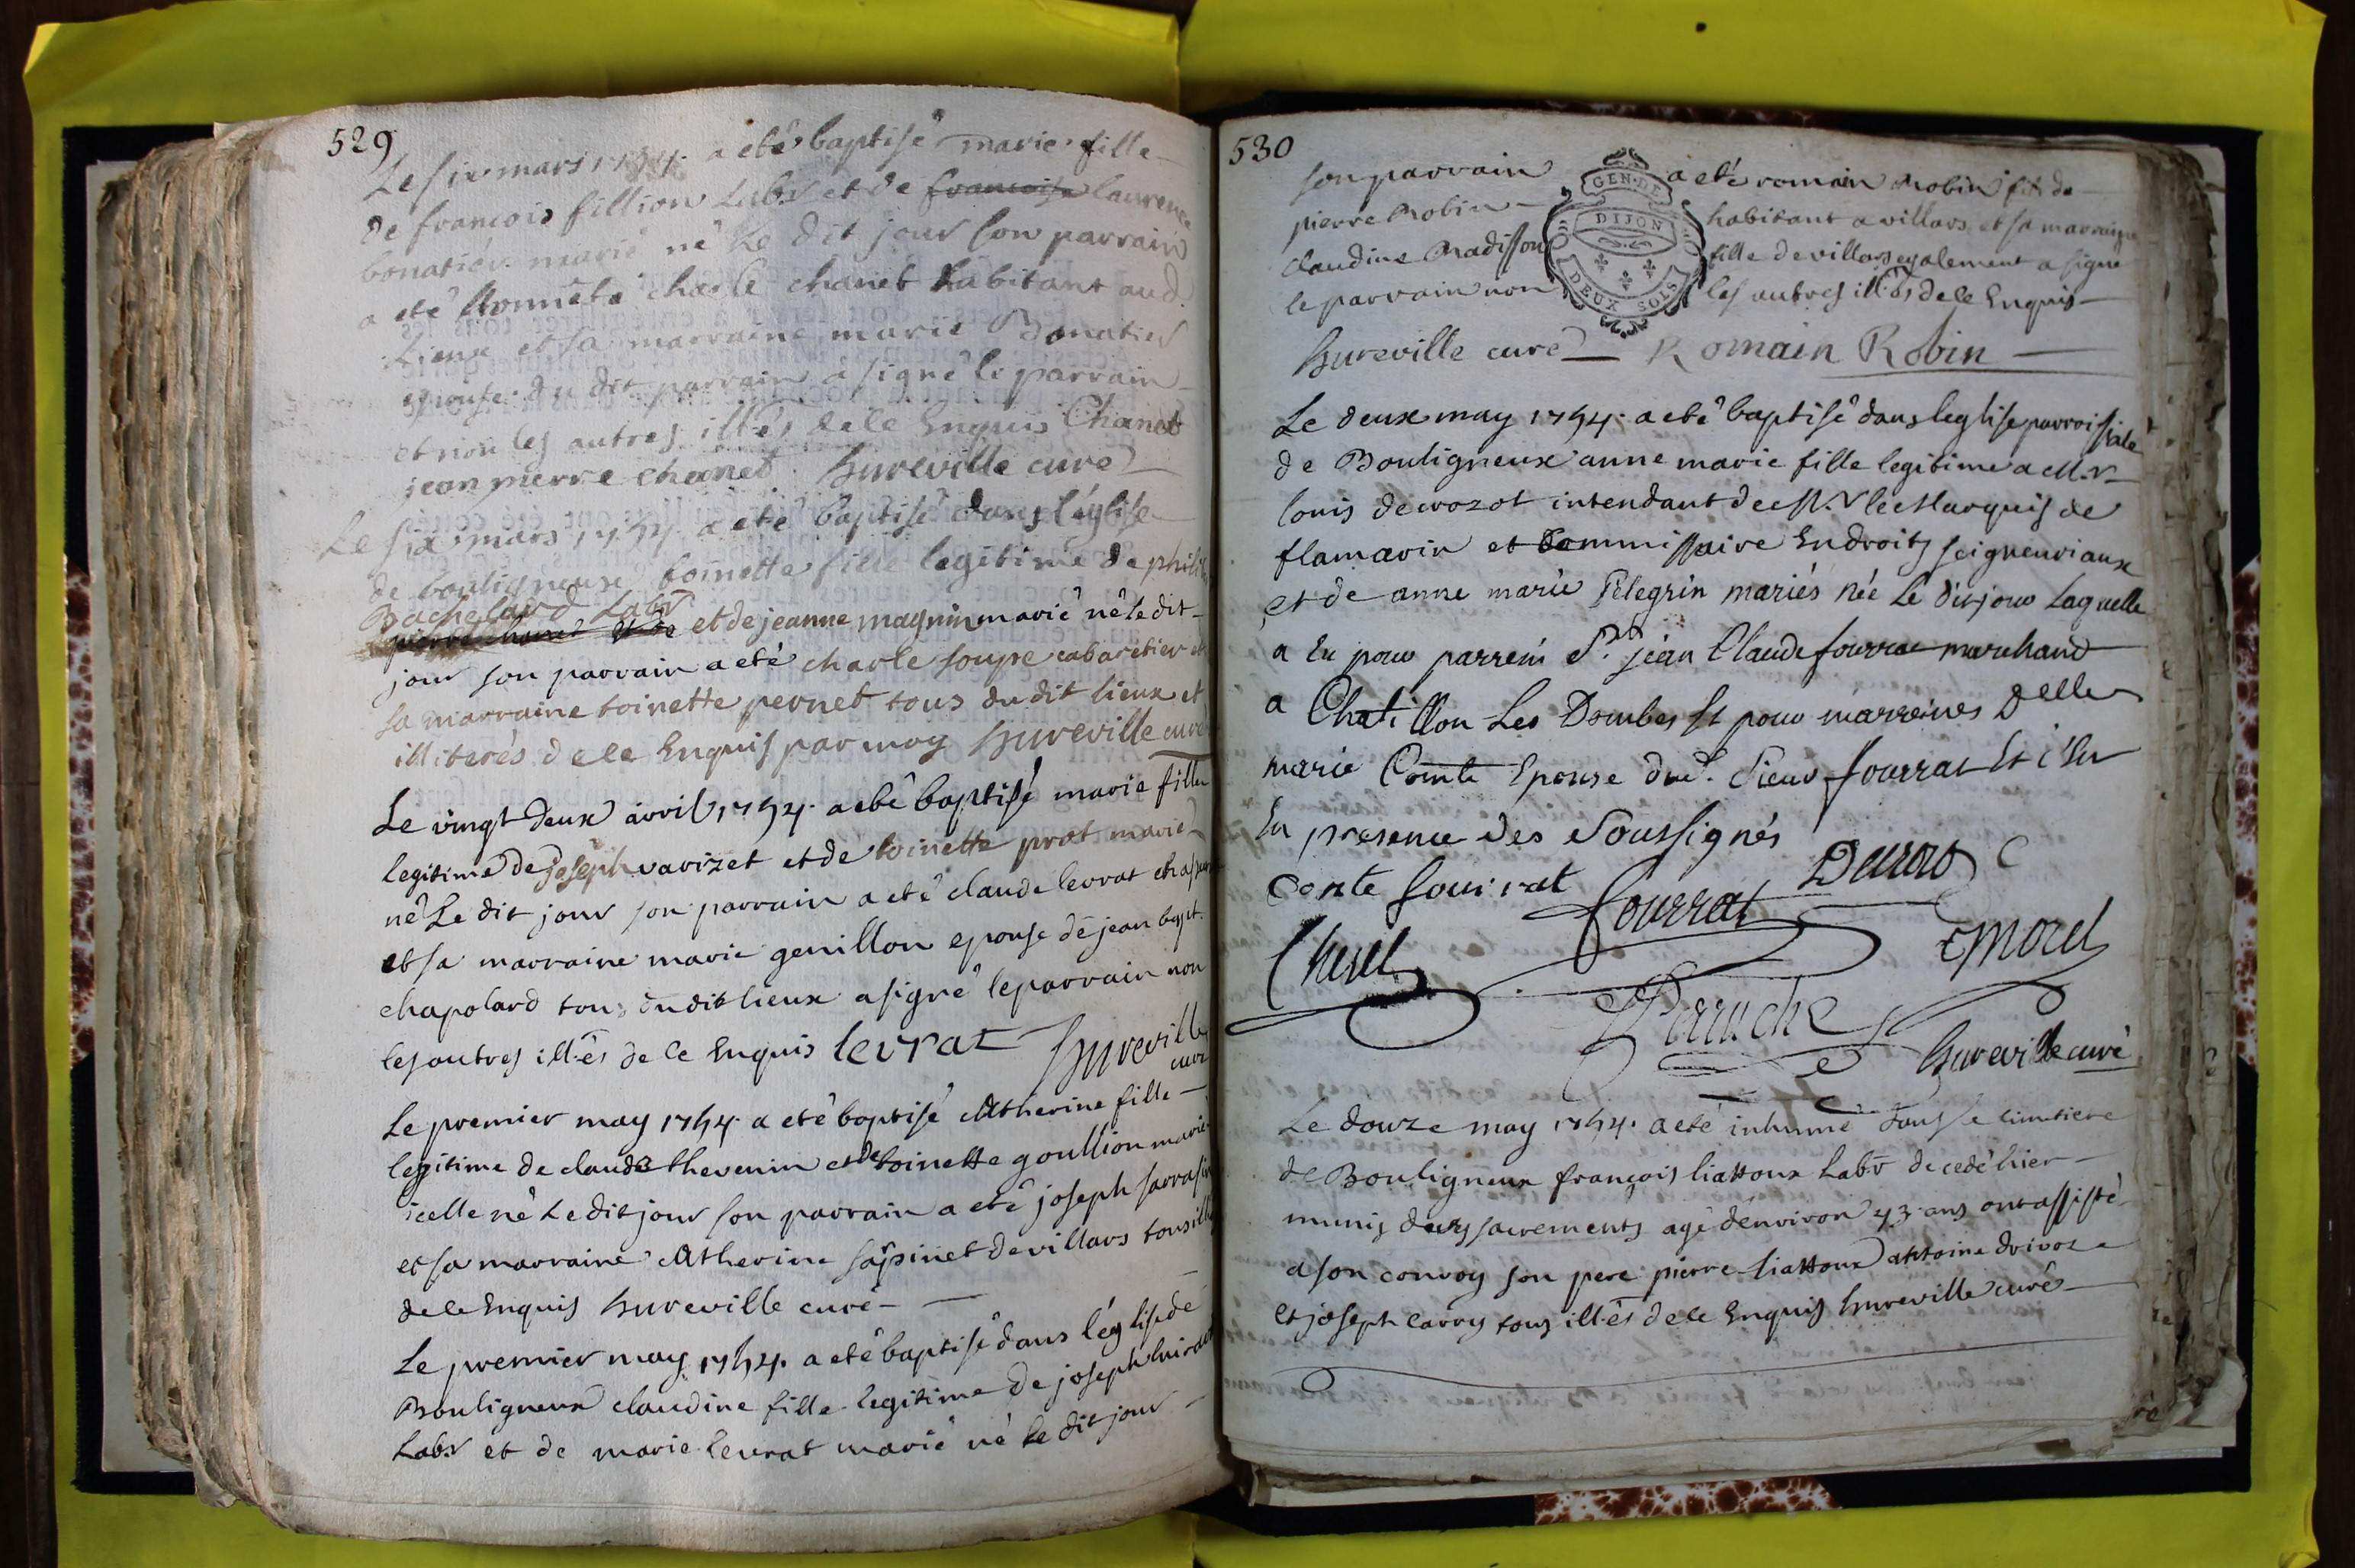 529
Le six mars 1754. a eté baptisé marie fille
de francois fillion Labr et de francoise laurence
bonatier marié né Le dit jour son parrain
a eté honnete charle chanet habitant aud.
Lieux et sa marraine marie Bonatier
epouse du dit parrain a signé le parrain
et non les autres ill-és de ce Enquis Chanet
jean pierre chanet hureville curé
Le six mars 1754 a eté baptisé dans l'église
de bouligneux toinette fille legitime de phili
Bachelard Labr
pierre chanet et de et de jeanne magnin marié né le dit
jour son parrain a eté charle soupe cabaretier et
sa marraine toinette pernet tous du dit lieux et
illiterés de ce Enquis par moy hureville curé
Le vingt deux avril 1754. a eté baptisé marie fille
legitime de joseph varizet et de toinette prot marié
né Le dit jour son parrain a eté claude levrat
et sa marraine marie genillon epouse de jean bapt.
chapolard tous du dit lieux a signé le parrain non
les autres ill-és de ce Enquis levrat hureville
curé
Le premier may 1754. a eté baptisé Catherine fille
legitime de claude thevenin et de toinette goullion marié
icelle né Le dit jour son parrain a eté joseph sarrasin
et sa marraine Catherine sapinet de villars tous ill
de ce Enquis hureville curé
Le premier may 1754. a eté baptisé dans l'église de
Bouligneux claudine fille legitime de joseph
Labr et de marie levrat marié né le dit jour
530
son parrain a eté romain Robin fils de
pierre Robin habitant a villars et sa marraine
claudine Madisson fille de villars egalement a signé
le parrain non les autres ill-és de ce Enquis
GEN. DE
DIJON
DEUX SOLS
hureville curé Romain Robin
Le deux may 1754. a eté baptisé dans leglise parroissiale
de Bouligneux anne marie fille legitime a M.r
louis decrozot intendant de M.r le Marquis de
flamarin et Commissaire En droits seigneuriaux
et de anne marie Pelegrin mariés née Le dit jour Laquelle
a Eu pour parrein Sr. jean Claude fourrat marchand
a Chatillon Les Dombes Et pour marreines Delle
marie Comte Epouse dud. Sieur fourrat Et c'Eu
En presence des Soussignés
Conte fourrat fourrat Decrozo
Cheul Morel
Perruche
hureville curé
Le douze may 1754. a eté inhumé dans le cimitiere
de Bouligneux françois liattoux Labr decedé hier
munis des sacrements agé d'environ 43. ans ont assisté
a son convoy son pere pierre liattoux antoine drivoz
et joseph carry tous ill-és de ce Enquis hureville curé